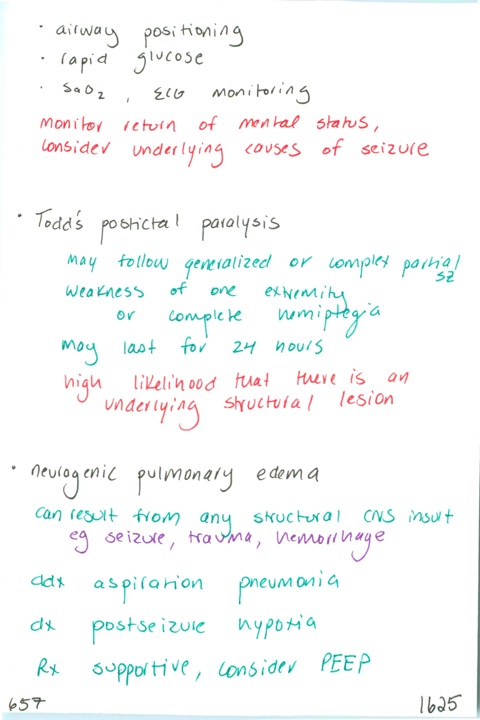 · airway positioning
· rapid glucose
· SaO2, ECG monitoring
monitor return of mental status,
consider underlying causes of seizure
· Todd's postictal paralysis
may follow generalized or complex partial
sz
weakness of one extremity
or complete hemiplegia
may last for 24 hours
high likelihood that there is an
underlying structural lesion
· neurogenic pulmonary edema
can result from any structural CNS insult
eg seizure, trauma, hemorrhage
ddx aspiration pneumonia
dx postseizure hypoxia
Rx supportive, consider PEEP
657 1625